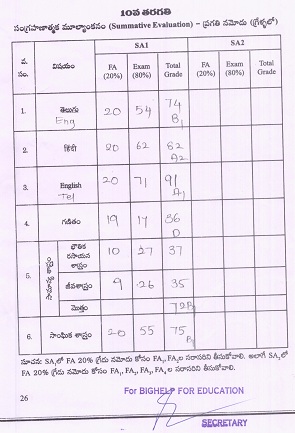 10వ తరగతి
సంగ్రహణాత్మక మూల్యాంకనం (Summative Evaluation) – ప్రగతి నమోదు (గ్రేళ్ళలో)
వ. సం. విషయం SA1 SA2
FA (20%) Exam (80%) Total Grade FA (20%) Exam (80%) Total Grade
1. తెలుగు Eng 20 54 74 B1
2. हिंदी 20 62 82 A2
3. English Tel 20 71 91 A1
4. గణితం 19 17 36 D
5. భౌతిక రసాయన శాస్త్రం 10 27 37
జీవశాస్త్రం 9 26 35
మొత్తం 72 B1
6. సాంఘిక శాస్త్రం 20 55 75 B1
సూచన: SA1లో FA 20% గ్రేడు నమోదు కోసం FA1, FA2ల సరాసరిని తీసుకోవాలి. అలాగే SA2లో
FA 20% గ్రేడు నమోదు కోసం FA1, FA2, FA3, FA4 ల సరాసరిని తీసుకోవాలి.
26
For BIGHELP FOR EDUCATION
SECRETARY